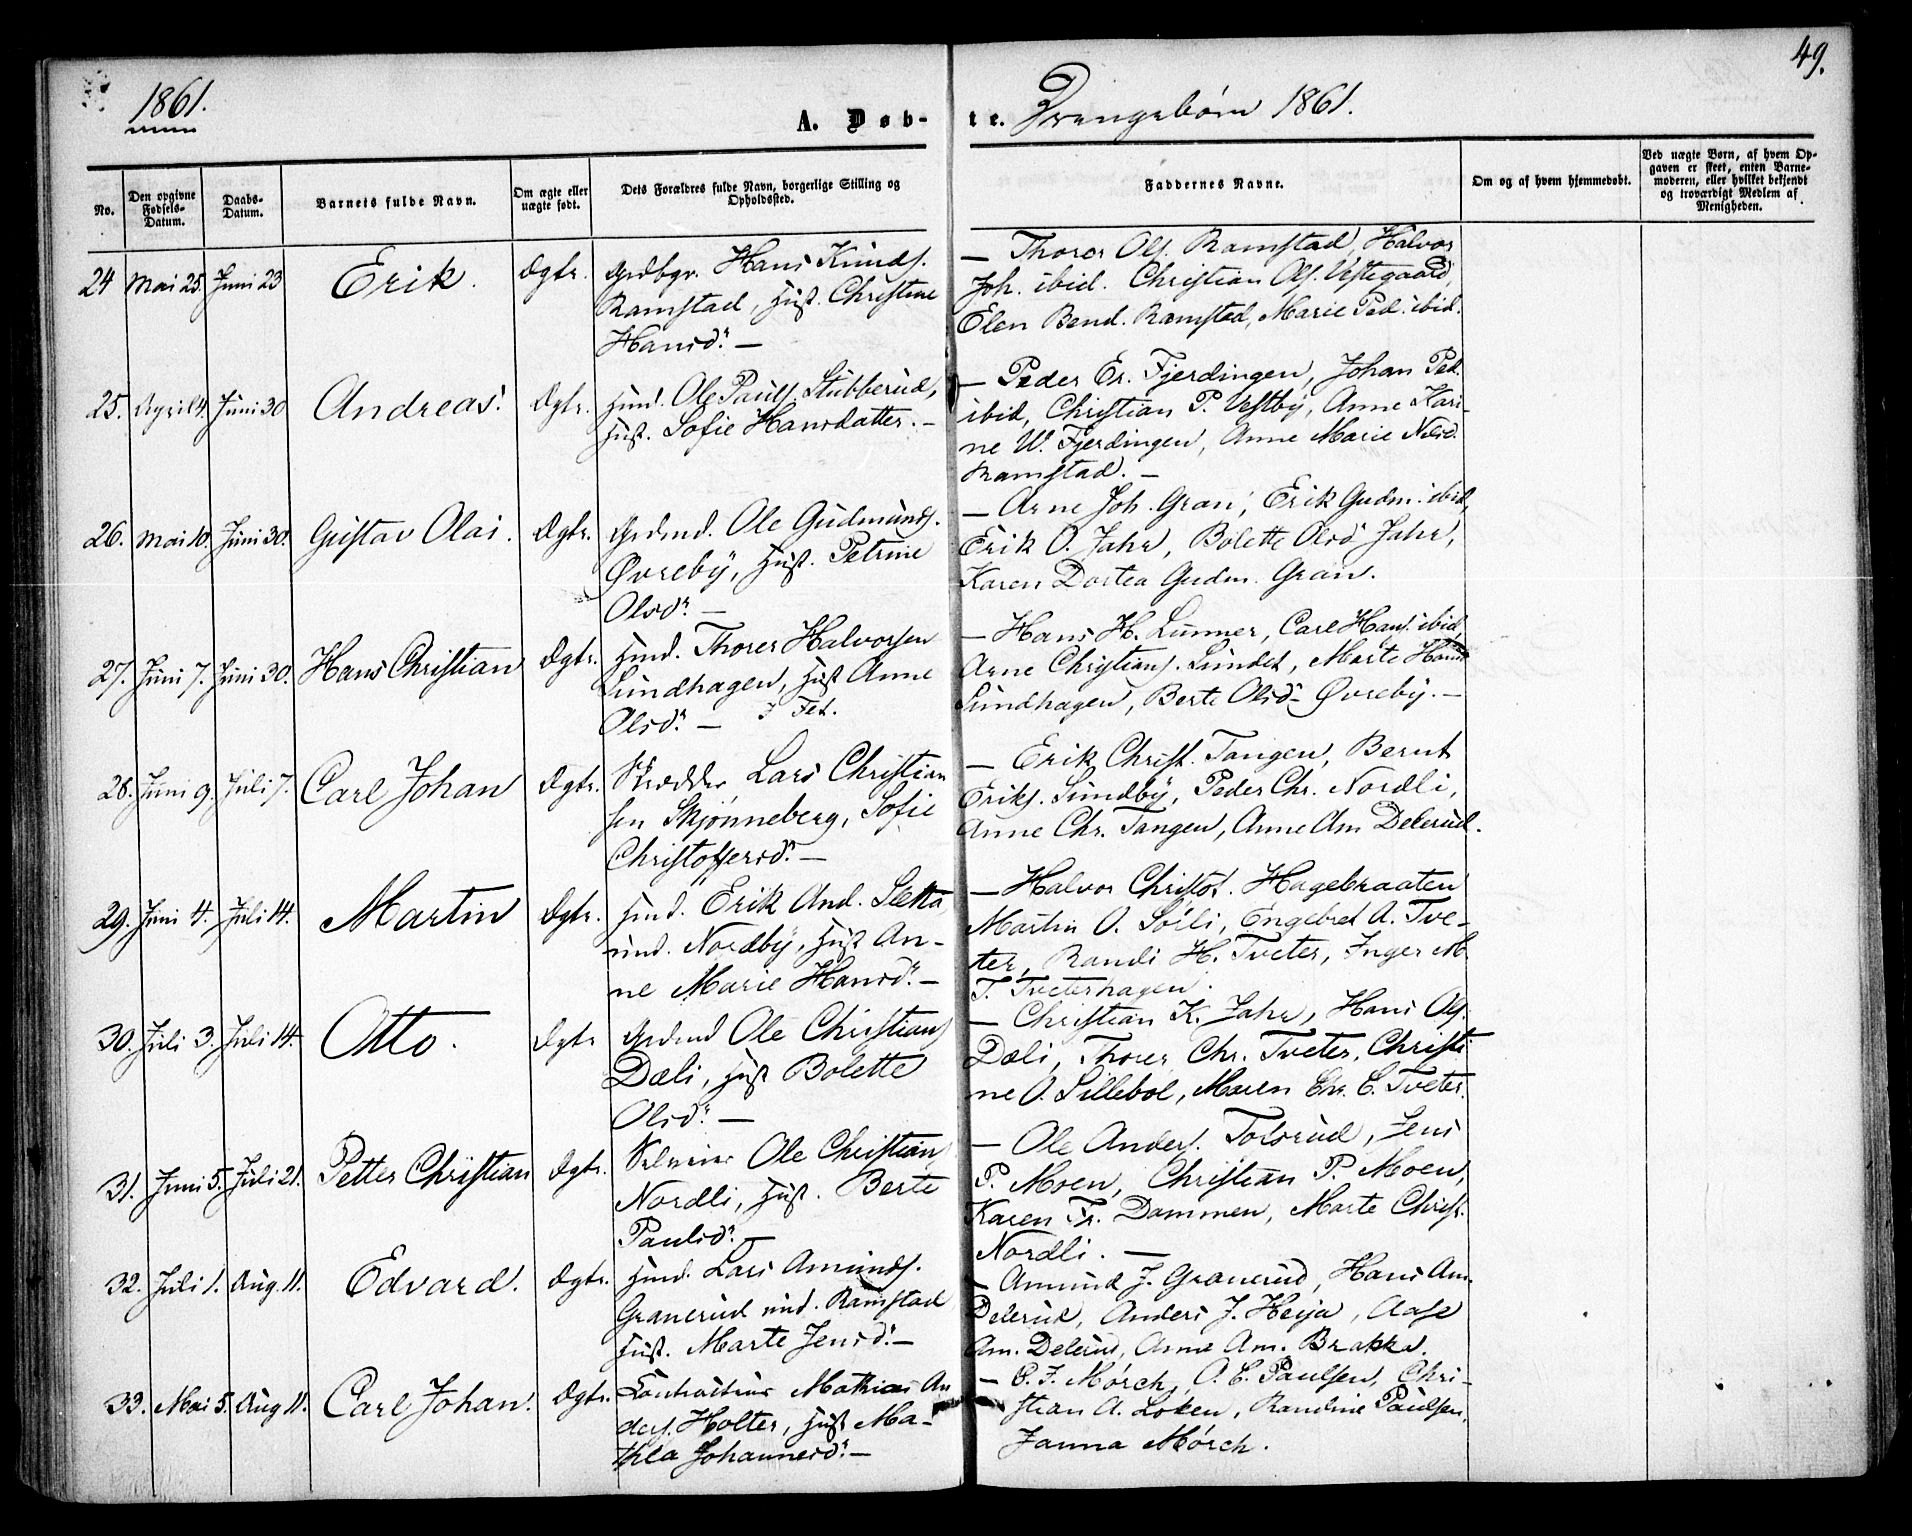 49.
1861.
A. Døb-
te. Drengebørn 1861.
No.
Den opgivne Fødsels-Datum.
Daabs-Datum.
Barnets fulde Navn.
Om ægte eller uægte født.
Dets Forældres fulde Navn, borgerlige Stilling og Opholdssted.
Faddernes Navne.
Om og af hvem hjemmedøbt.
Ved uægte Børn, af hvem Opgaven er skeet, enten Barnemoderen, eller hvilket bekjendt og troværdigt Medlem af Menigheden.
24 Mai 25. Juni 23 Erik. Ægtr. Grdbgr. Hans Knuds.
Ramstad, Hust. Christine
Hansd.r —
— Thorer Ols. Ramstad, Halvor
Joh. ibid. Christian Ols. Vestegaard,
Elen Bend. Ramstad, Marie Ped. ibid.
25. April 4. Juni 30 Andreas. Ægtr. Husd. Ole Pauls. Stubberud,
Hust. Sofie Hansdatter. —
— Peder Er. Fjerdingen, Johan Ped.
ibid, Christian P. Vestby, Anne Kari-
ne W. Fjerdingen, Anne Marie Nilsd.
Ramstad. —
26. Mai 10. Juni 30. Gustav Olai. Ægtr. Grdmd. Ole Gudmunds.
Øvreby, Hust. Petrine
Olsd.r —
— Arne Joh. Gran, Erik Gudm. ibid,
Erik O. Jahr, Bolette Olsd. Jahr,
Karen Dortea Gudm. Gran.
27. Juni 7. Juni 30. Hans Christian Ægtr. Husd. Thorer Halvorsen
Sundhagen, Hust Anne
Olsd.r — I Fet.
— Hans H. Lunner, Carl Hans. ibid,
Arne Christians. Sundet, Marte Hansd
Sundhagen, Berte Olsd. Øvreby. —
28. Juni 9. Juli 7. Carl Johan Ægtr. Skrædder Lars Christian
sen Skjønneberg, Sofie
Christoffersd.r —
— Erik Christ. Tangen, Bernt
Eriks. Sundby, Peder Chr. Nordli,
Anne Chr. Tangen, Anne Am Delerud.
29. Juni 4. Juli 14. Martin Ægtr. Husd. Erik And. Sletta
und. Nordby, Hust An-
ne Marie Hansd.r —
— Halvor Christof. Hagebraaten
Martin O. Sørli, Engebret A. Tve-
ter, Randi H. Tveter, Inger M.
T. Tveterhagen.
30. Juli 3. Juli 14. Otto. Ægtr Grdmd Ole Christians
Dæli, Hust Bolette
Olsd.r —
— Christian K. Jahr, Hans Ols.
Dæli, Thorer Chr. Tveter, Christi
ne O. Lillebol, Maren Chr. C. Tveter.
31. Juni 5. Juli 21. Petter Christian Ægtr. Selveier Ole Christians
Nordli, Hust. Berte
Paulsd.r —
— Ole Anders. Tolsrud, Jens
P. Moen, Christian P. Moen,
Karen Fr. Dammen, Marte Christ.
Nordli. —
32. Juli 1. Aug. 11. Edvard. Ægtr. Husd. Lars Amunds.
Granerud und. Ramstad
Hust. Marte Jensd.r —
— Amund J. Granerud, Hans Am.
Delerud, Anders J. Heija, Aase
Am. Delerud, Anne Am. Brakke.
33. Mai 5. Aug 11. Carl Johan. Ægtr. Landhandler Mathias An
ders. Holter, Hust Ma-
thea Johannesd.r —
— C. F. Mørch, O. C. Paulsen, Chri-
stian A. Løken, Randine Paulsen,
Janna Mørch.